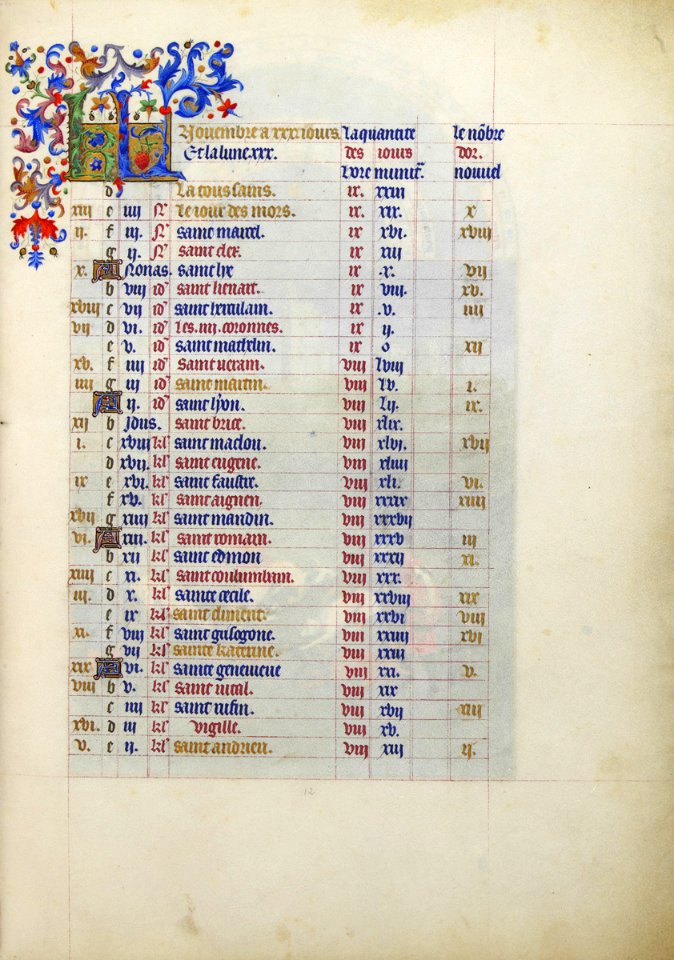 Novembre a xxx iours. la quantite le nõbre
Et la lune. xxx. des iours dor.
heure minut. nouuel
d La tous sains. ix. xxiii
xiii e iiii N̄ le iour des mors. ix. xix. x
ii. f iii. N̄ saint marcel. ix xvi. xviii
g ii. N̄ saint cler. ix xiii
x. A Nonas. saint lye ix .x. vii
b viii id' saint lienart. ix viii. xv.
xviii c vii id' saint herculain. ix .v. iiii
vii d vi. id' les. iiii. coronnes. ix ii.
e v. id' saint mathelin. ix o xii
xv. f iiii id' saint veram. viii lviii
iiii g iii id' saint martin. viii lv. i.
A ii. id' saint lyon. viii lii. ix.
xii b Idus. saint brice. viii xlix.
i. c xviii kl' saint maclou. viii xlvi. xvii
d xvii. kl' saint eugene. viii xliiii
ix e xvi. kl' saint faustre. viii xli. vi.
f xv. kl' saint aignen. viii xxxix xiiii
xvii g xiiii kl' saint mandin. viii xxxvii
vi. A xiii. kl' saint romain. viii xxxv iii
b xii kl' saint edmon viii xxxii xi.
xiiii c xi. kl' saint coulumbam. viii xxx.
iii. d x. kl' sainte cecile. viii xxviii xix
e ix kl' saint climent. viii xxvi viii
xi. f viii kl' saint grisogone. viii xxiiii xvi
g vii kl' sainte katerine. viii xxiii
xix A vi. kl' sainte geneuieue viii xxi. v.
viii b v. kl' saint vital. viii xix
c iiii kl' saint rufin. viii xvii xiii
xvi. d iii kl' vigille. viii xv.
v. e ii. kl' saint andrieu. viii xiii ii.
12